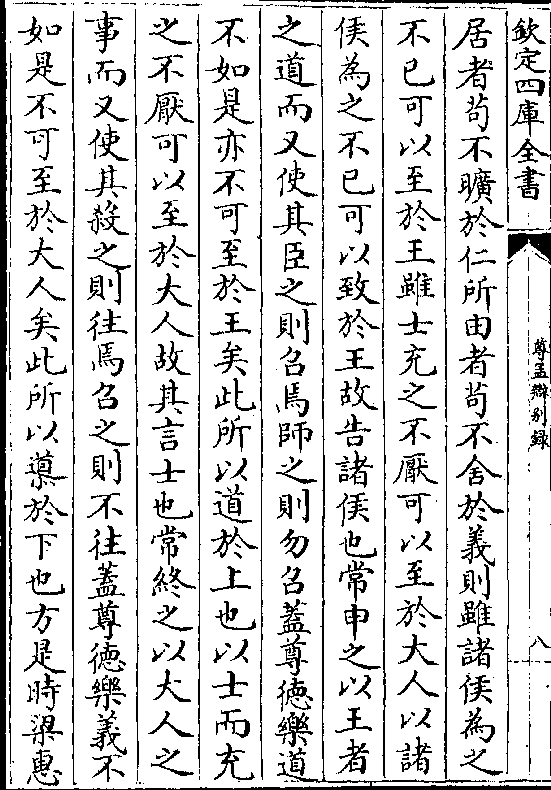 欽定四庫全書
尊孟辯别録
八
居者苟不曠於仁所由者苟不舍於義則雖諸侯為之
不已可以至於王雖士充之不厭可以至於大人以諸
侯為之不已可以致於王故告諸侯也常申之以王者
之道而又使其臣之則召焉師之則勿召蓋尊德樂道
不如是亦不可至於王矣此所以道於上也以士而充
之不厭可以至於大人故其言士也常終之以大人之
事而又使其殺之則往焉召之則不往蓋尊德樂義不
如是不可至於大人矣此所以導於下也方是時梁惠